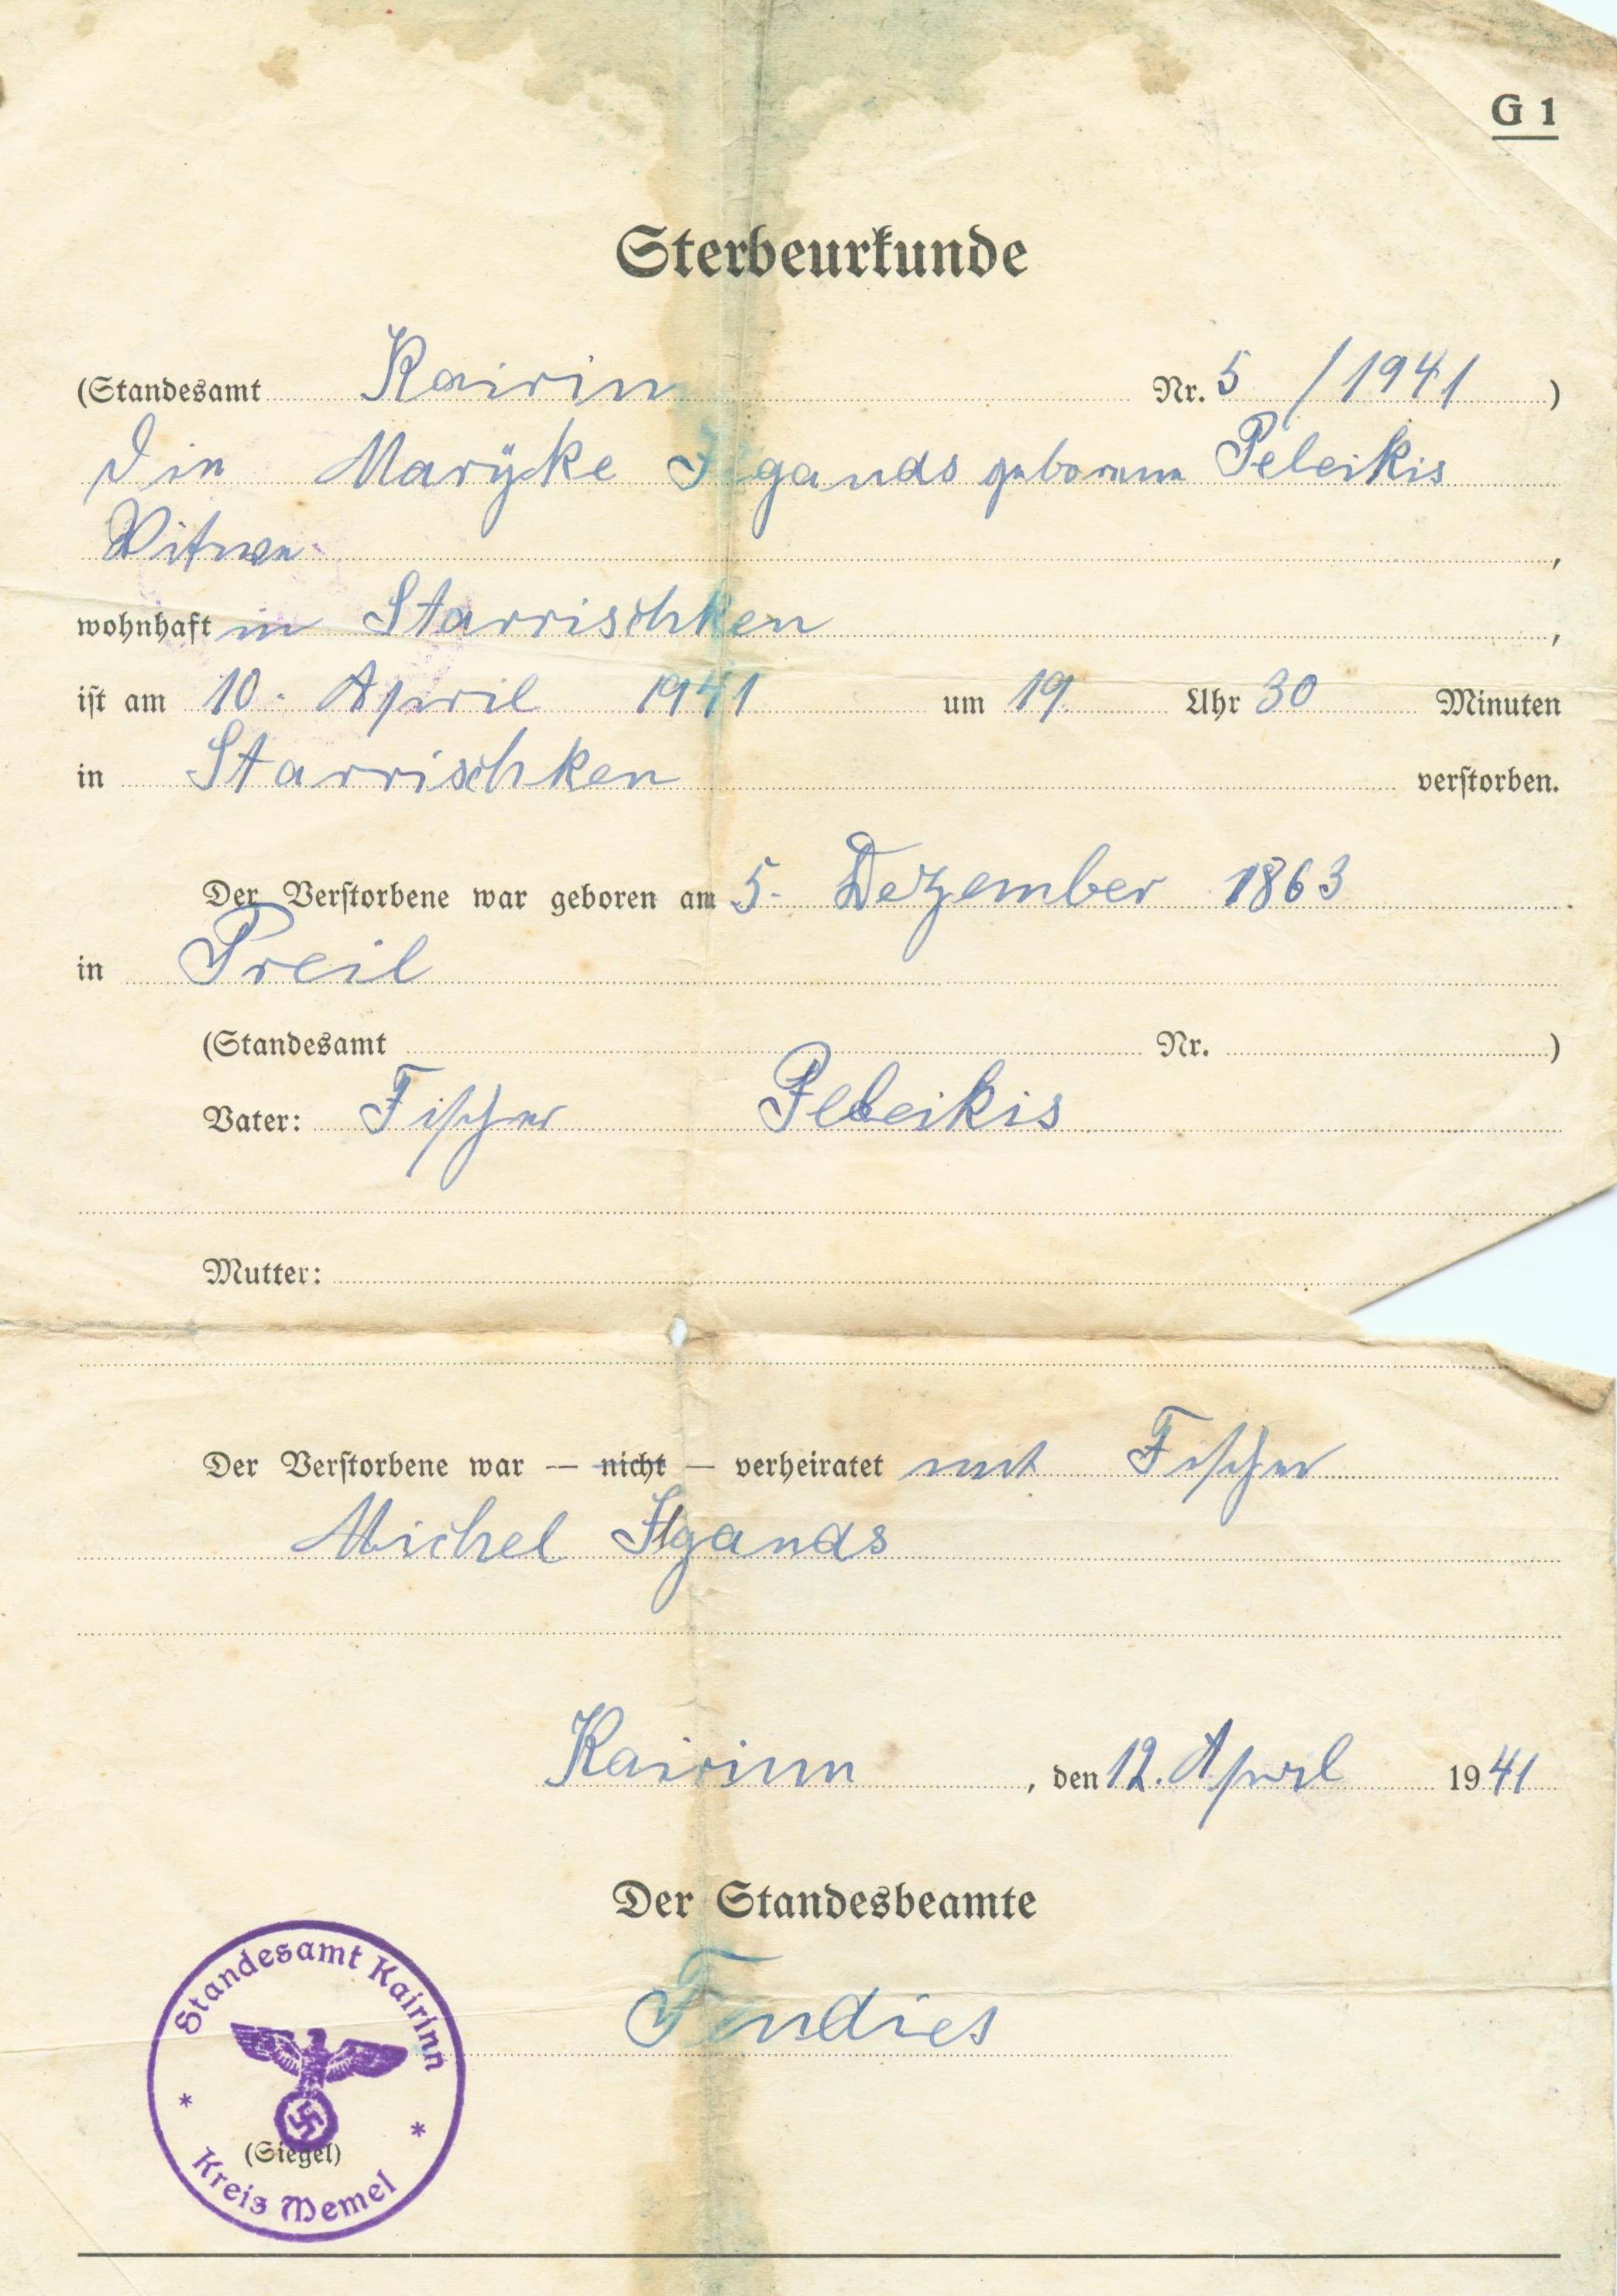 G 1
Sterbeurkunde
(Standesamt Kairin Nr. 5 / 1941 )
Die Marÿke Ilgands geborene Peleikis
Witwe ,
wohnhaft in Starrischken ,
ist am 10. April 1941 um 19 Uhr 30 Minuten
in Starrischken verstorben.
Der Verstorbene war geboren am 5. Dezember 1863
in Preil
(Standesamt Nr. )
Vater: Fischer Peleikis
Mutter:
Der Verstorbene war — nicht — verheiratet mit Fischer
Michel Ilgands
Kairinn , den 12. April 1941
Der Standesbeamte
Standesamt Kairinn
(Siegel)
* Kreis Memel *